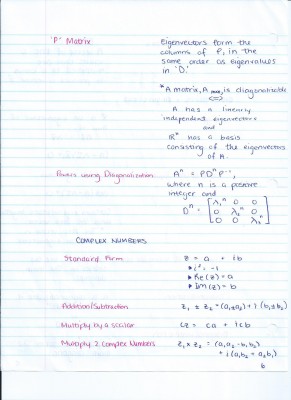 'P' Matrix
Eigenvectors form the
columns of P, in the
same order as eigenvalues
in 'D.'
*A matrix, A is diagonalizable
⇔
A has n linearly
independent eigenvectors
and
Rⁿ has a basis
consisting of the eigenvectors
of A.
Powers using Diagonalization
Aⁿ = PDⁿP⁻¹,
where n is a positive
integer and
Dⁿ = [λ₁ⁿ 0 0
0 λ₂ⁿ 0
0 0 λ₃ⁿ]
COMPLEX NUMBERS
Standard Form
z = a + ib
• i² = -1
• Re(z) = a
• Im(z) = b
Addition/Subtraction
z₁ ± z₂ = (a₁±a₂) + i(b₁±b₂)
Multiply by a scalar
cz = ca + icb
Multiply 2 Complex Numbers
z₁ × z₂ = (a₁a₂ - b₁b₂)
+ i(a₁b₂ + a₂b₁)
6